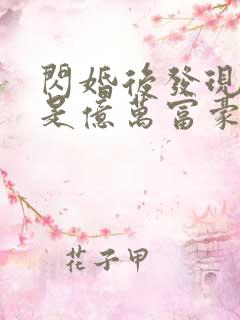 閃婚後發現
是億萬富豪
花子甲